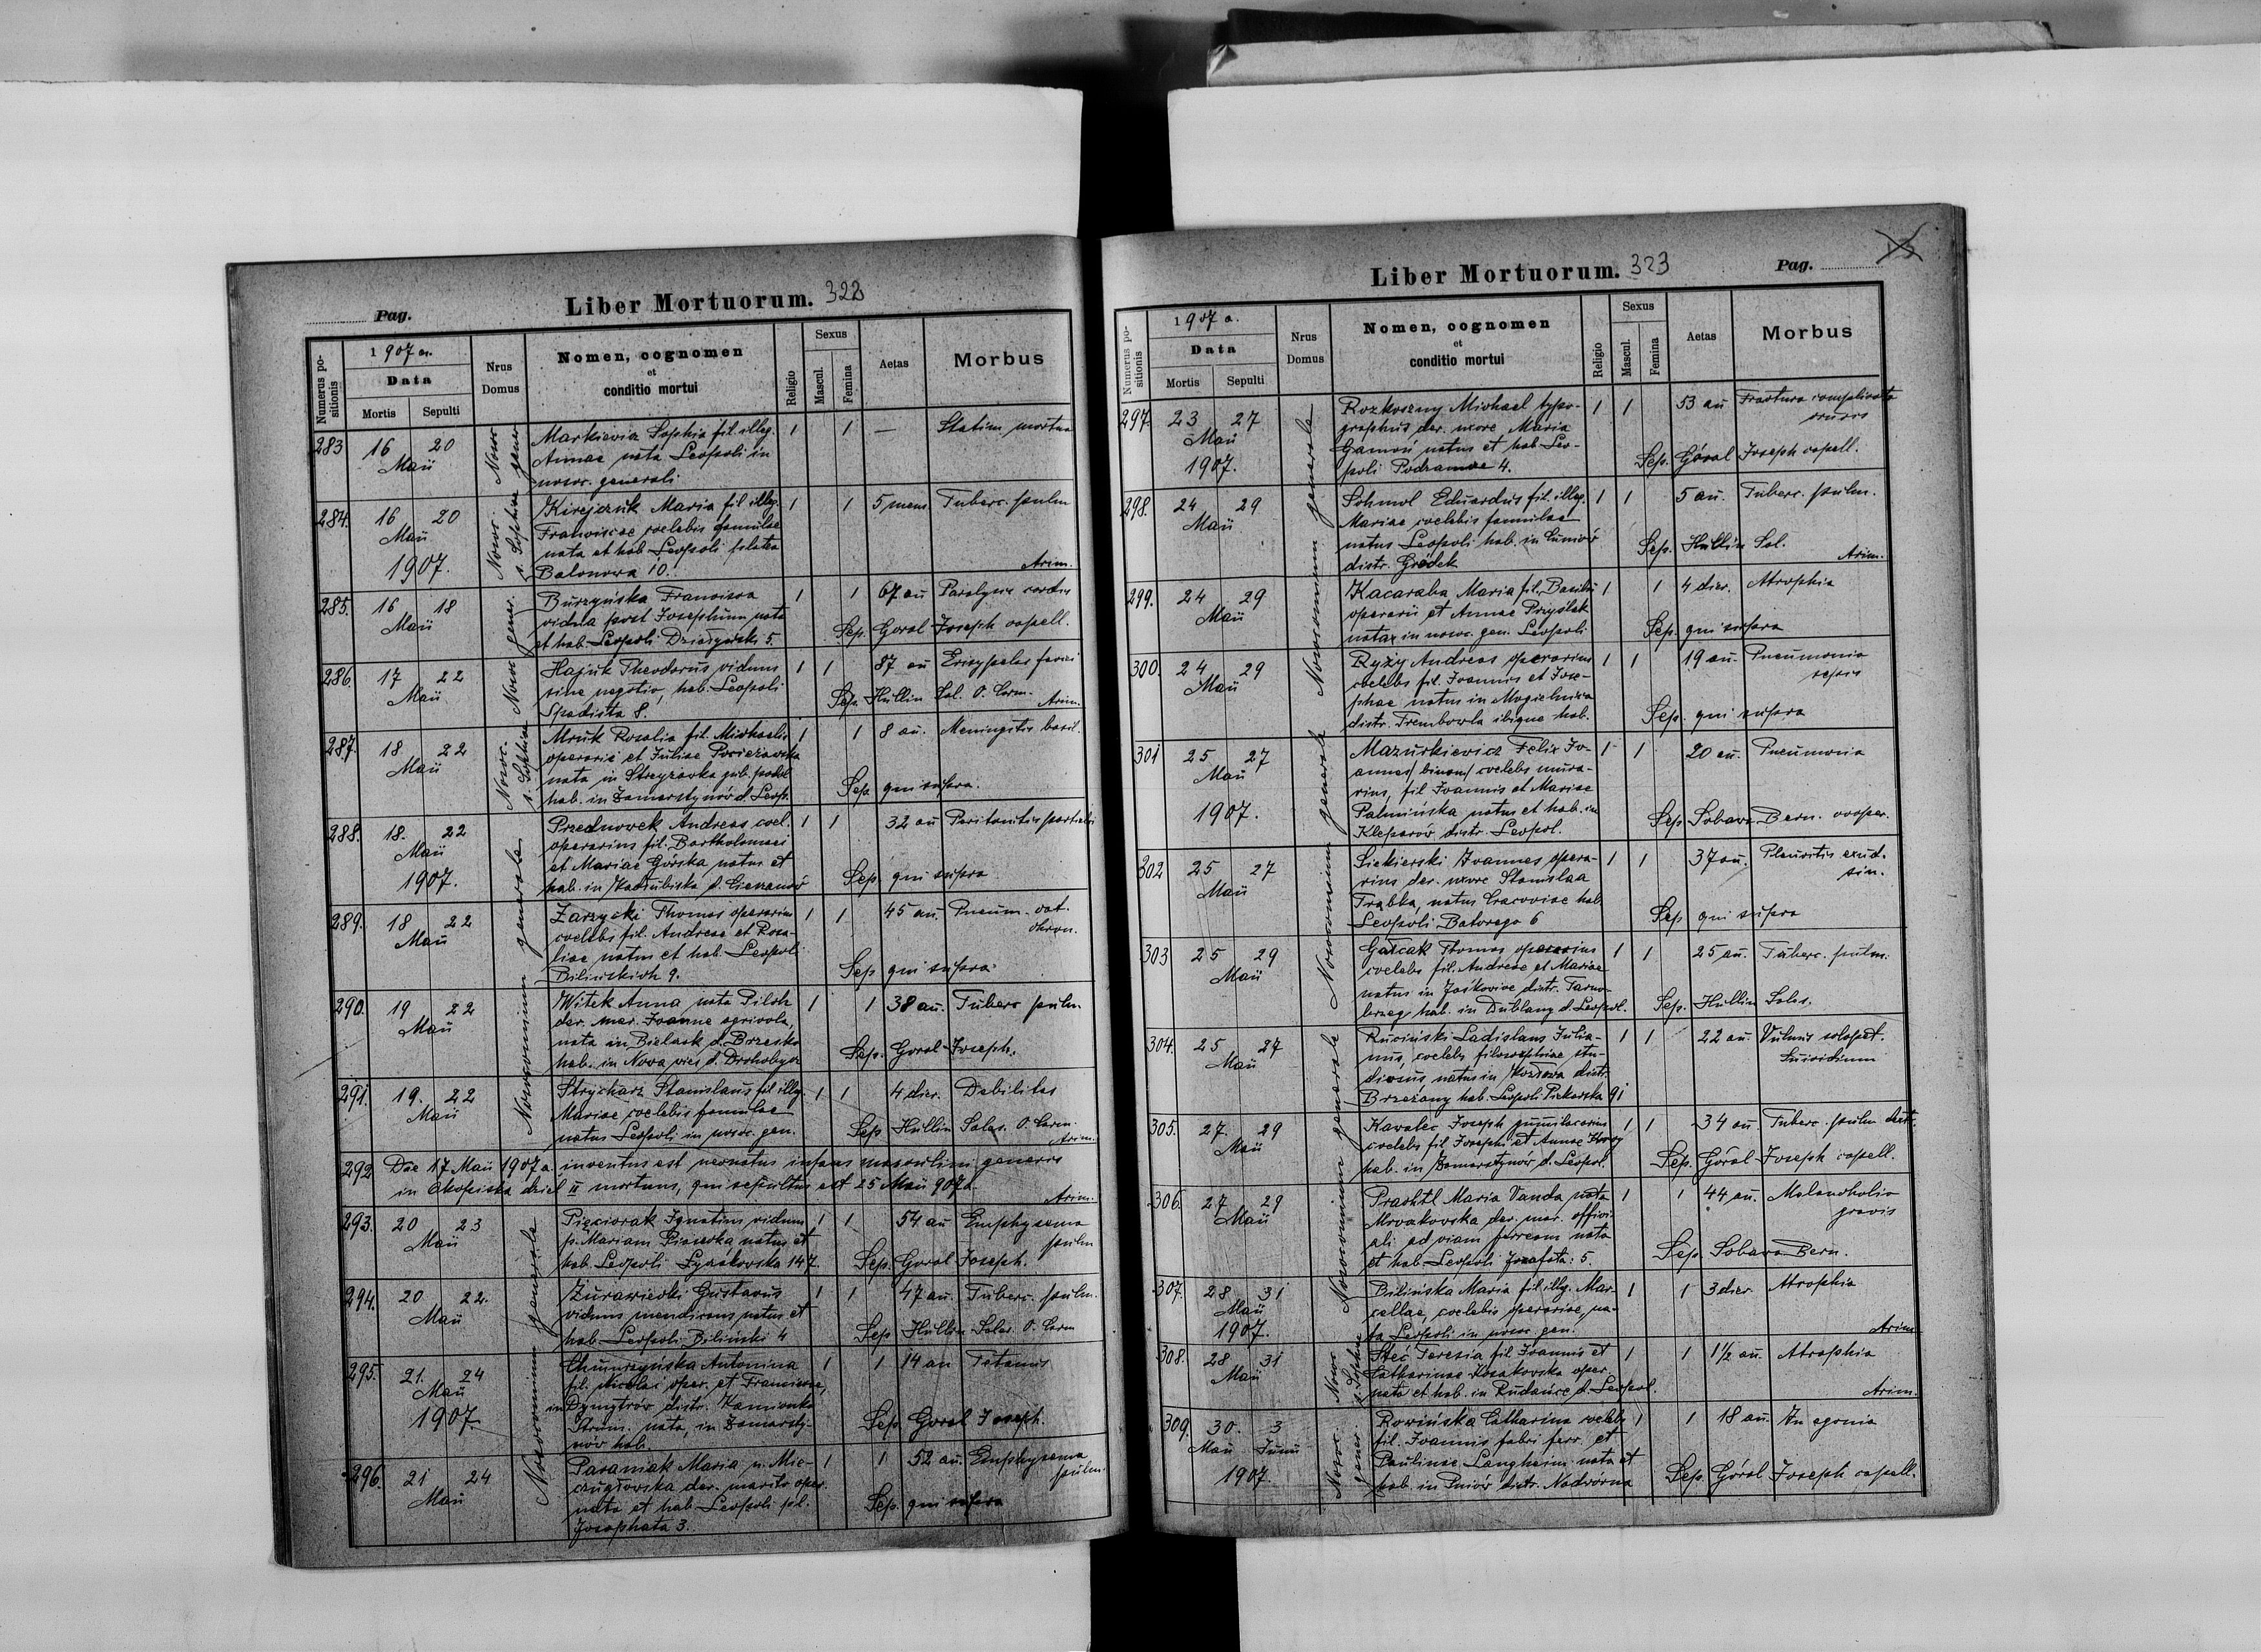 Pag.
Liber Mortuorum. 322
Numerus positionis
1907 a.
Data
Mortis Sepulti
Nrus Domus
Nomen, cognomen
et
conditio mortui
Religio
Sexus
Mascul. Femina
Aetas
Morbus
283 16 20 Markiewicz Sophia fil. illeg. 1 1 — Statim mortua
Maii Annae nata Leopoli in
nosoc. generali
Nosoc. s. Sophiae
Nosoc. gener.
284. 16 20 Kirejczuk Maria fil. illeg. 1 1 5 mens. Tuberc. pulm
Maii Franciscae coelebis famulae
1907. nata et hab. Leopoli platea
Balonowa 10. Arim.
285. 16 18 Burzyńska Francisca 1 1 67 an Paralysis cordis
Maii vidua post Josephum nata
et hab. Leopoli 5. Sep. Goral Joseph capell.
Nosoc. gener.
286. 17 22 Hajuk Theodorus, viduus 1 1 87 an Erisypelas faciei
Maii sine negotio, hab. Leopoli Sep. Hullin Sal. O. Carm.
Spadista 8. Arim.
Nosoc. s. Sophiae
287. 18 22 Mruk Rosalia fil. Michaelis 1 1 8 an. Meningitis basil.
Maii operarii et Juliae
nata in gub. podol
hab. in Zamarstynów d. Leop. Sep. qui supra.
288. 18. 22 Przednowek Andreas coel. 1 1 32 an Peritonitis
Maii operarius fil. Bartholomaei
1907. et Mariae Górska natus et
hab. in d. Cieszanów Sep. qui supra
Nosocomium generale
289. 18 22 Zarzycki Thomas operarius 1 1 45 an. Pneum. cat.
Maii coelebs fil. Andreae et Rosa- chron.
liae natus et hab. Leopoli
Bilinskich 9. Sep. qui supra.
290. 19 22 Witek Anna nata Pilch 1 1 38 an. Tuberc pulm.
Maii der. mar. Joanne agricola,
nata in d. Brzesko
hab. in Nova vies d. Drohobycz Sep. Goral Joseph.
291. 19. 22 Strycharz Stanislaus fil illeg. 1 1 4 dier. Debilitas
Maii Mariae coelebis famulae
natus Leopoli in nosoc. gen. Sep. Hullin Sales. O. Carm.
Arim.
292 Die 17 Maii 1907 a. inventus est neonatus infans masculini generis
in Okopiska dziel II mortuus, qui sepultus est 25 Maii 907 a.
Arim.
293. 20 23 Pięciorak Ignatius viduus 1 1 54 an Emphysema
Maii p. Mariam natus et pulm
hab. Leopoli Łyczakovska 147. Sep. Goral Joseph.
Nosocomium generale
294. 20 22. Gustavus 1 1 47 an. Tuberc. pulm.
Maii viduus mendicus natus et
hab. Leopoli Biliński 4 Sep. Hullin Sales. O. Carm
295. 21. 24 Antonina 1 1 14 an Tetanus
Maii fil. Nicolai oper. et Franciscae,
1907. in Dymytrów distr. Kamionka
Strum. nata, in Zamarsty- Sep. Goral Joseph.
nów hab.
296. 21 24 Paraniak Maria n. Mie- 1 1 52 an. Emphysema
Maii czugłovska der. marito oper. pulm.
nata et hab. Leopoli pl. Sep. qui supra
Josaphata 3.
Liber Mortuorum. 323
Pag.
Numerus positionis
1907 a.
Data
Mortis Sepulti
Nrus Domus
Nomen, cognomen
et
conditio mortui
Religio
Sexus
Mascul. Femina
Aetas
Morbus
297. 23 27 Rozkoszny Michael typo- 1 1 53 an Fractura complicata
Maii graphus der. uxore Maria cruris
1907. Gamoń natus et hab. Leo-
poli 4. Sep. Góral Joseph capell.
Nosocomium generale
298. 24 29 Schmol Eduardus fil. illeg. 1 1 5 an. Tuberc. pulm.
Maii Mariae coelebis famulae
natus Leopoli hab. in Sep. Hullin Sal.
distr. Gródek Arim.
299. 24 29 Kacaraba Maria fil. Basilii 1 1 4 dier. Atrophia
Maii operarii et Annae Przyslak
nata in nosoc. gen. Leopoli Sep. qui supra
300. 24 29 Ryży Andreas operarius 1 1 19 an. Pneumonia
Maii coelebs fil. Joannis et Jose- sepsis
phae natus in Mogielnica
distr. Trembowla ibique hab. Sep. qui supra
301 25 27 Mazurkiewicz Felix Jo- 1 1 20 an. Pneumonia
Maii annes /binom/ coelebs mura-
rius, fil Joannis et Mariae
1907. Palmińska natus et hab. in
Kleparów distr. Leopol. Sep. Bern. cooper.
Nosocomium generale
302 25 27 Siekierski Joannes opera- 1 1 37 an. Pleuritis exud.
Maii rius der. uxore Stanislaa sin.
Trąbka, natus Cracoviae hab.
Leopoli Batorego 6 Sep qui supra
303 25 29 Gałcak Thomas operarius 1 1 25 an. Tuberc. pulm.
Maii coelebs fil. Andreae et Mariae
natus in distr. Tarno-
brzeg hab. in Dublany d. Leopol. Sep. Hullin Sales.
304. 25 27 Ruciński Ladislaus Julia- 1 1 22 an. Vulnus sclopet.
Maii nus, coelebs filosophiae stu- Suicidium
diosus natus in Kozowa distr.
Brzeżany hab. Leopoli Piekarska 91
Nosocomium generale
305. 27. 29 Kavalec Joseph coelebs 1 1 34 an Tuberc. pulm
Maii fil Josephi et Annae
hab. in Zamarstynów d. Leopol. Sep. Góral Joseph capell.
306. 27 29 Prachtl Maria Vanda nata 1 1 44 an. Melancholia
Maii Mrvakovska der. mar. offici- gravis
ali ad viam ferream nata
et hab. Leopoli Jozafata: 5. Sep. Bern.
307. 28 31 Bilińska Maria fil illeg. Mar- 1 1 3 dier. Atrophia
Maii cellae, coelebis operariae, na-
1907. ta Leopoli in nosoc. gen. Arim.
308. 28 31 Steć Teresia fil Joannis et 1 1 1½ an. Atrophia
Maii Catharinae Kosakovska oper.
nata et hab. in d. Leopol. Arim.
Nosoc. s. Sophiae
309. 30. 3 Rowińska Catharina coelebs 1 1 18 an. In agonia
Maii Junii fil. Joannis fabri ferr. et
Paulinae Langheim nata et
1907. hab. in Pniów distr. Nadwórna Sep. Góral Joseph capell.
Nosoc. gener.